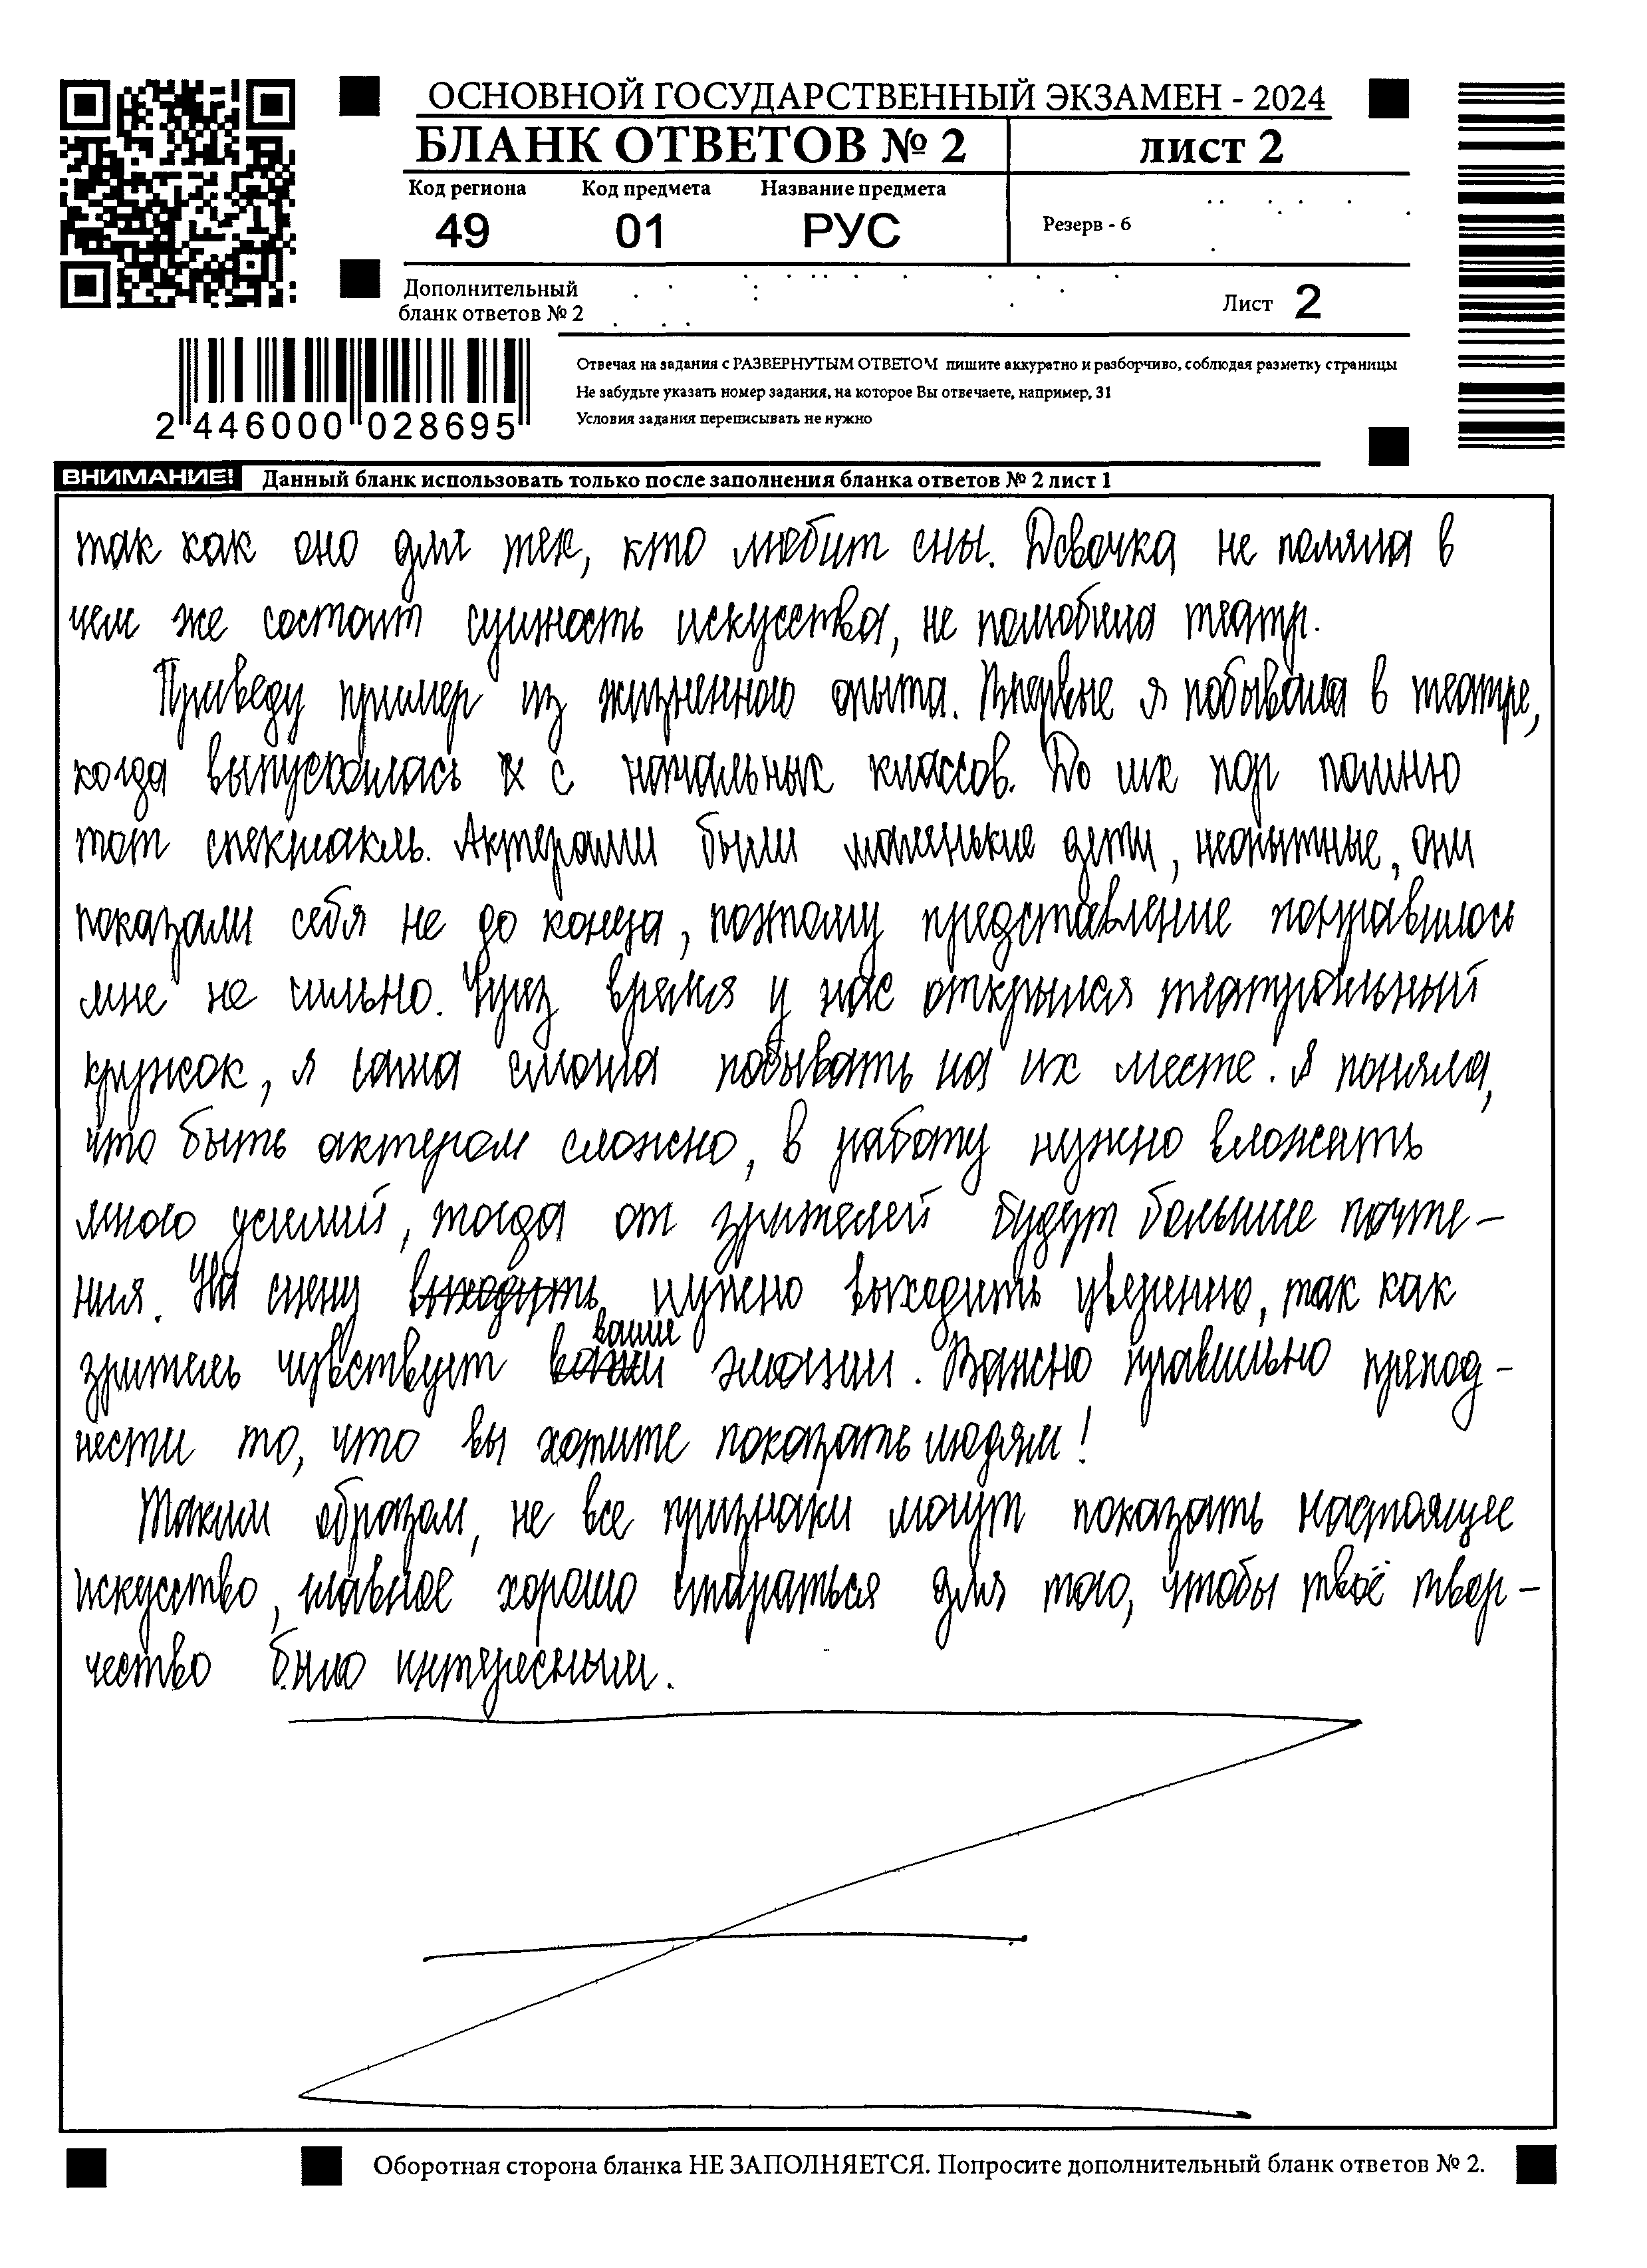 ОСНОВНОЙ ГОСУДАРСТВЕННЫЙ ЭКЗАМЕН - 2024
БЛАНК ОТВЕТОВ № 2
лист 2
Код региона Код предмета Название предмета
49 01 РУС
Резерв - 6
Дополнительный
бланк ответов № 2
Лист 2
2 446000 028695
Отвечая на задания с РАЗВЕРНУТЫМ ОТВЕТОМ пишите аккуратно и разборчиво, соблюдая разметку страницы
Не забудьте указать номер задания, на которое Вы отвечаете, например, 31
Условия задания переписывать не нужно
ВНИМАНИЕ! Данный бланк использовать только после заполнения бланка ответов № 2 лист 1
так как оно для тех, кто любит сны. Девочка не поняла в
чем же состоит сущность искусства, не полюбила театр.
Приведу пример из жизненного опыта. Впервые я побывала в театре,
когда выпускалась с начальных классов. До сих пор помню
тот спектакль. Актерами были маленькие дети, неопытные, они
показали себя не до конца, поэтому представление понравилось
мне не сильно. Через время у нас открылся театральный
кружок, я сама смогла побывать на их месте. Я поняла,
что быть актером сложно, в работу нужно вложить
много усилий, тогда от зрителей будут больше почте-
ния. На сцену выходить нужно выходить уверенно, так как
зритель чувствует ваши эмоции. Важно правильно препод-
нести то, что вы хотите показать людям!
Таким образом, не все признаки могут показать настоящее
искусство, главное хорошо стараться для того, чтобы твоё твор-
чество было интересным.
Оборотная сторона бланка НЕ ЗАПОЛНЯЕТСЯ. Попросите дополнительный бланк ответов № 2.